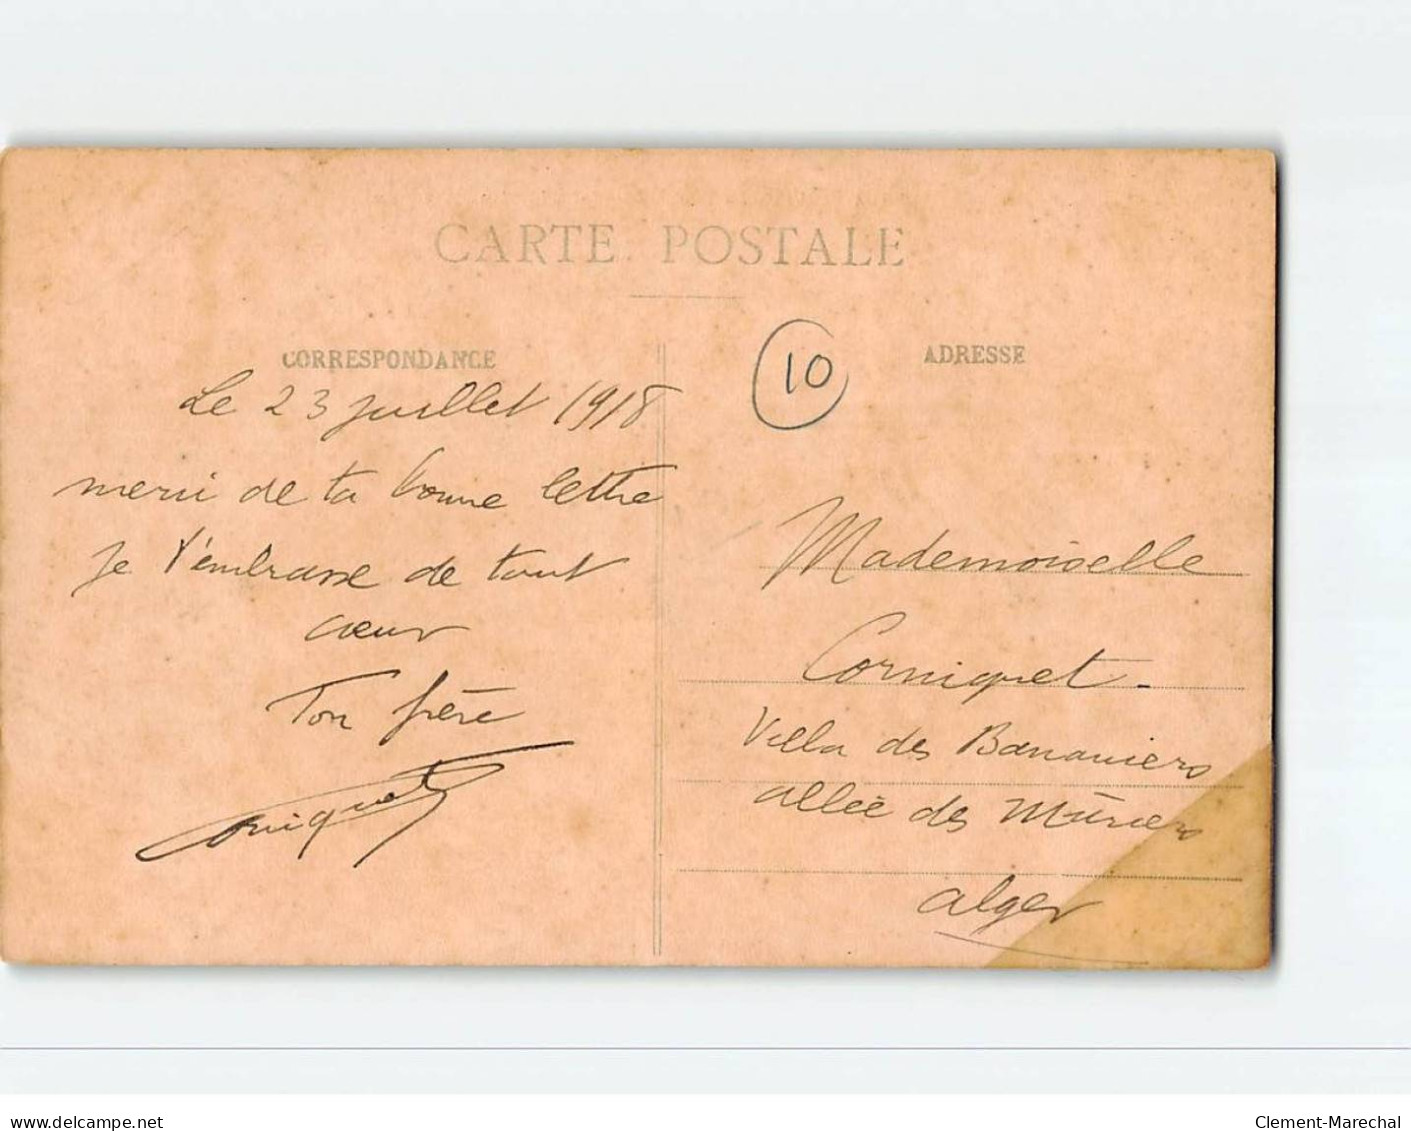 CARTE POSTALE
CORRESPONDANCE
Le 23 juillet 1918
merci de ta bonne lettre
je t'embrasse de tout
cœur
Ton frère
Corniquet
10
ADRESSE
Mademoiselle
Corniquet -
Villa des Bananiers
allée des Mûriers
alger
www.delcampe.net
Clement-Marechal